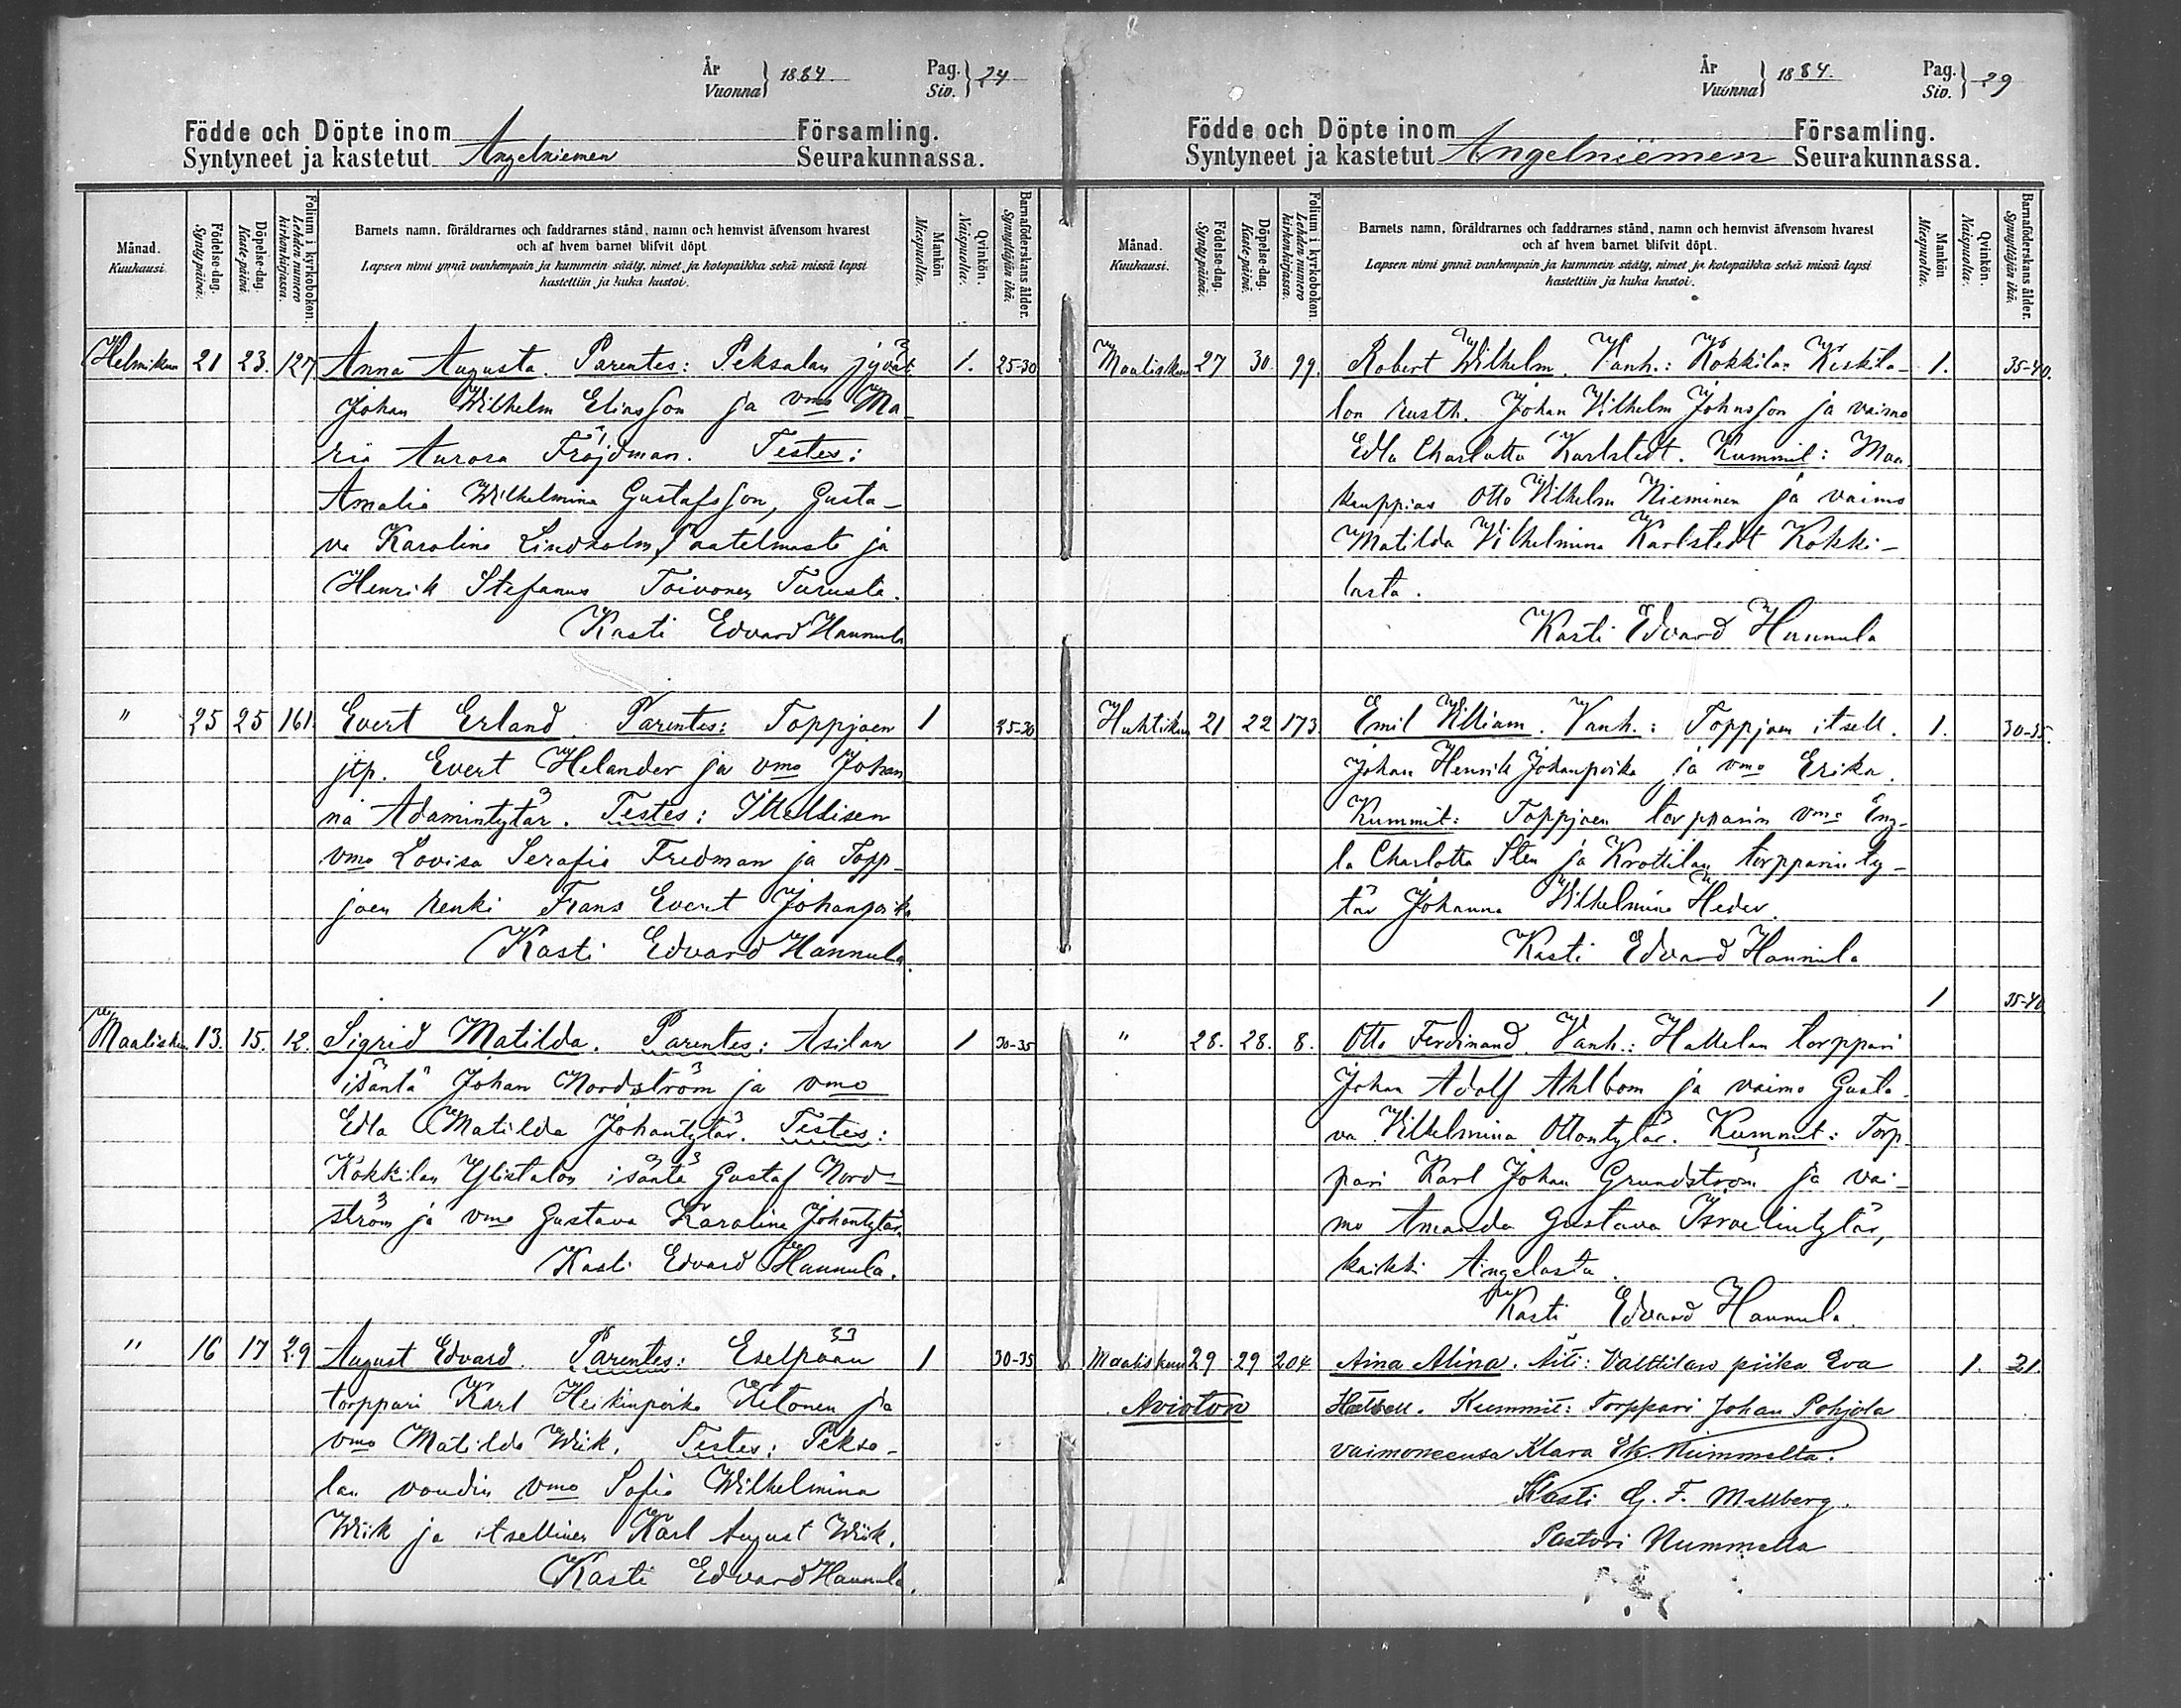 År
Vuonna } 1884.
Pag.
Siv. } 24
Födde och Döpte inom Församling.
Syntyneet ja kastetut Angelniemen Seurakunnassa.
Månad.
Kuukausi.
Födelse-dag.
Syntypäivä.
Döpelse-dag.
Kaste-päivä.
Folium i kyrkoboken.
Lehden numero kirkonkirjassa.
Barnets namn, föräldrarnes och faddrarnes stånd, namn och hemvist äfvensom hvarest
och af hvem barnet blifvit döpt.
Lapsen nimi ynnä vanhempain ja kummein sääty, nimet ja kotopaikka sekä missä lapsi
kastettiin ja kuka kastoi.
Mankön
Miespuolia.
Qvinkön.
Naispuolia.
Barnaföderskans ålder.
Synnyttäjän ikä.
Helmikuu 21 23. 127 Anna Augusta. Parentes: Peksalan 1. 25-30
Johan Wilhelm Eliasson ja vmo Ma-
ria Aurora Fröjdman. Testes:
Amalia Wilhelmina Gustafsson, Gusta-
va Karolina Lindholm, ja
Henrik Stefanus Toivonen Turusta.
Kasti Edvard Hannula
" 25 25 161. Evert Erland. Parentes: Toppjoen 1 25-30
jtp. Evert Helander ja vmo Johan
na Adamintytär. Testes: Ittellisen
vmo Lovisa Serafia Fredman ja Topp-
joen renki Frans Evert Johanpoika
Kasti Edvard Hannula.
Maaliskuu 13. 15. 12. Sigrid Matilda. Parentes: Asilan 1 30-35
isäntä Johan Nordström ja vmo
Edla Matilda Johantytär. Testes:
Kokkilan Ylistalon isäntä Gustaf Nord-
ström ja vmo Gustava Karolina Johantytär.
Kasti Edvard Hannula.
" 16 17 29 August Edvard. Parentes: Eselpään 1 30-35
torppari Karl Heikinpoika Ketonen ja
vmo Matilda Wiik. Testes: Peksa-
lan voudin vmo Sofia Wilhelmina
Wiik ja itsellinen Karl August Wiik.
Kasti Edvard Hannula.
År
Vuonna } 1884.
Pag.
Siv. } 29
Födde och Döpte inom Församling.
Syntyneet ja kastetut Angelniemen Seurakunnassa.
Månad.
Kuukausi.
Födelse-dag.
Syntypäivä.
Döpelse-dag.
Kaste-päivä.
Folium i kyrkoboken.
Lehden numero kirkonkirjassa.
Barnets namn, föräldrarnes och faddrarnes stånd, namn och hemvist äfvensom hvarest
och af hvem barnet blifvit döpt.
Lapsen nimi ynnä vanhempain ja kummein sääty, nimet ja kotopaikka sekä missä lapsi
kastettiin ja kuka kastoi.
Mankön
Miespuolia.
Qvinkön.
Naispuolia.
Barnaföderskans ålder.
Synnyttäjän ikä.
Maaliskuu 27 30. 99. Robert Wilhelm. Vanh.: Kokkilan Keskita- 1. 35-40.
lon rusth. Johan Vilhelm Johnsson ja vaimo
Edla Charlotta Karlstedt. Kummit: Maa
kauppias Otto Vilhelm Nieminen ja vaimo
Matilda Vilhelmina Karlstedt Kokki-
lasta.
Kasti Edvard Hannula
Huhtikuu 21 22 173. Emil Villiam. Vanh.: Toppjoen itsell. 1. 30-35.
Johan Henrik Johanpoika, ja vmo Erika.
Kummit: Toppjoen torpparin vmo Eng-
la Charlotta Sten ja Krottilan torpparin ty-
tär Johanna Wilhelmina Heder.
Kasti Edvard Hannula
1 35-40
" 28. 28. 8. Otto Ferdinand. Vanh.: Hattelan torppari
Johan Adolf Ahlbom ja vaimo Gusta-
va Vilhelmina Ottontytär. Kummit: Torp-
pari Karl Johan Grundström ja vai-
mo Amanda Gustava Israelintytär,
kaikki Angelasta.
Kasti Edvard Hannula.
Maaliskuu 29 29 204 Aina Alina. Äiti: Valttilan piika Eva 1. 21.
Avioton Kummit: Torppari Johan Pohjola
vaimoneensa Klara Ek Nummelta.
Kasti G. F. Mellberg.
Pastori Nummella